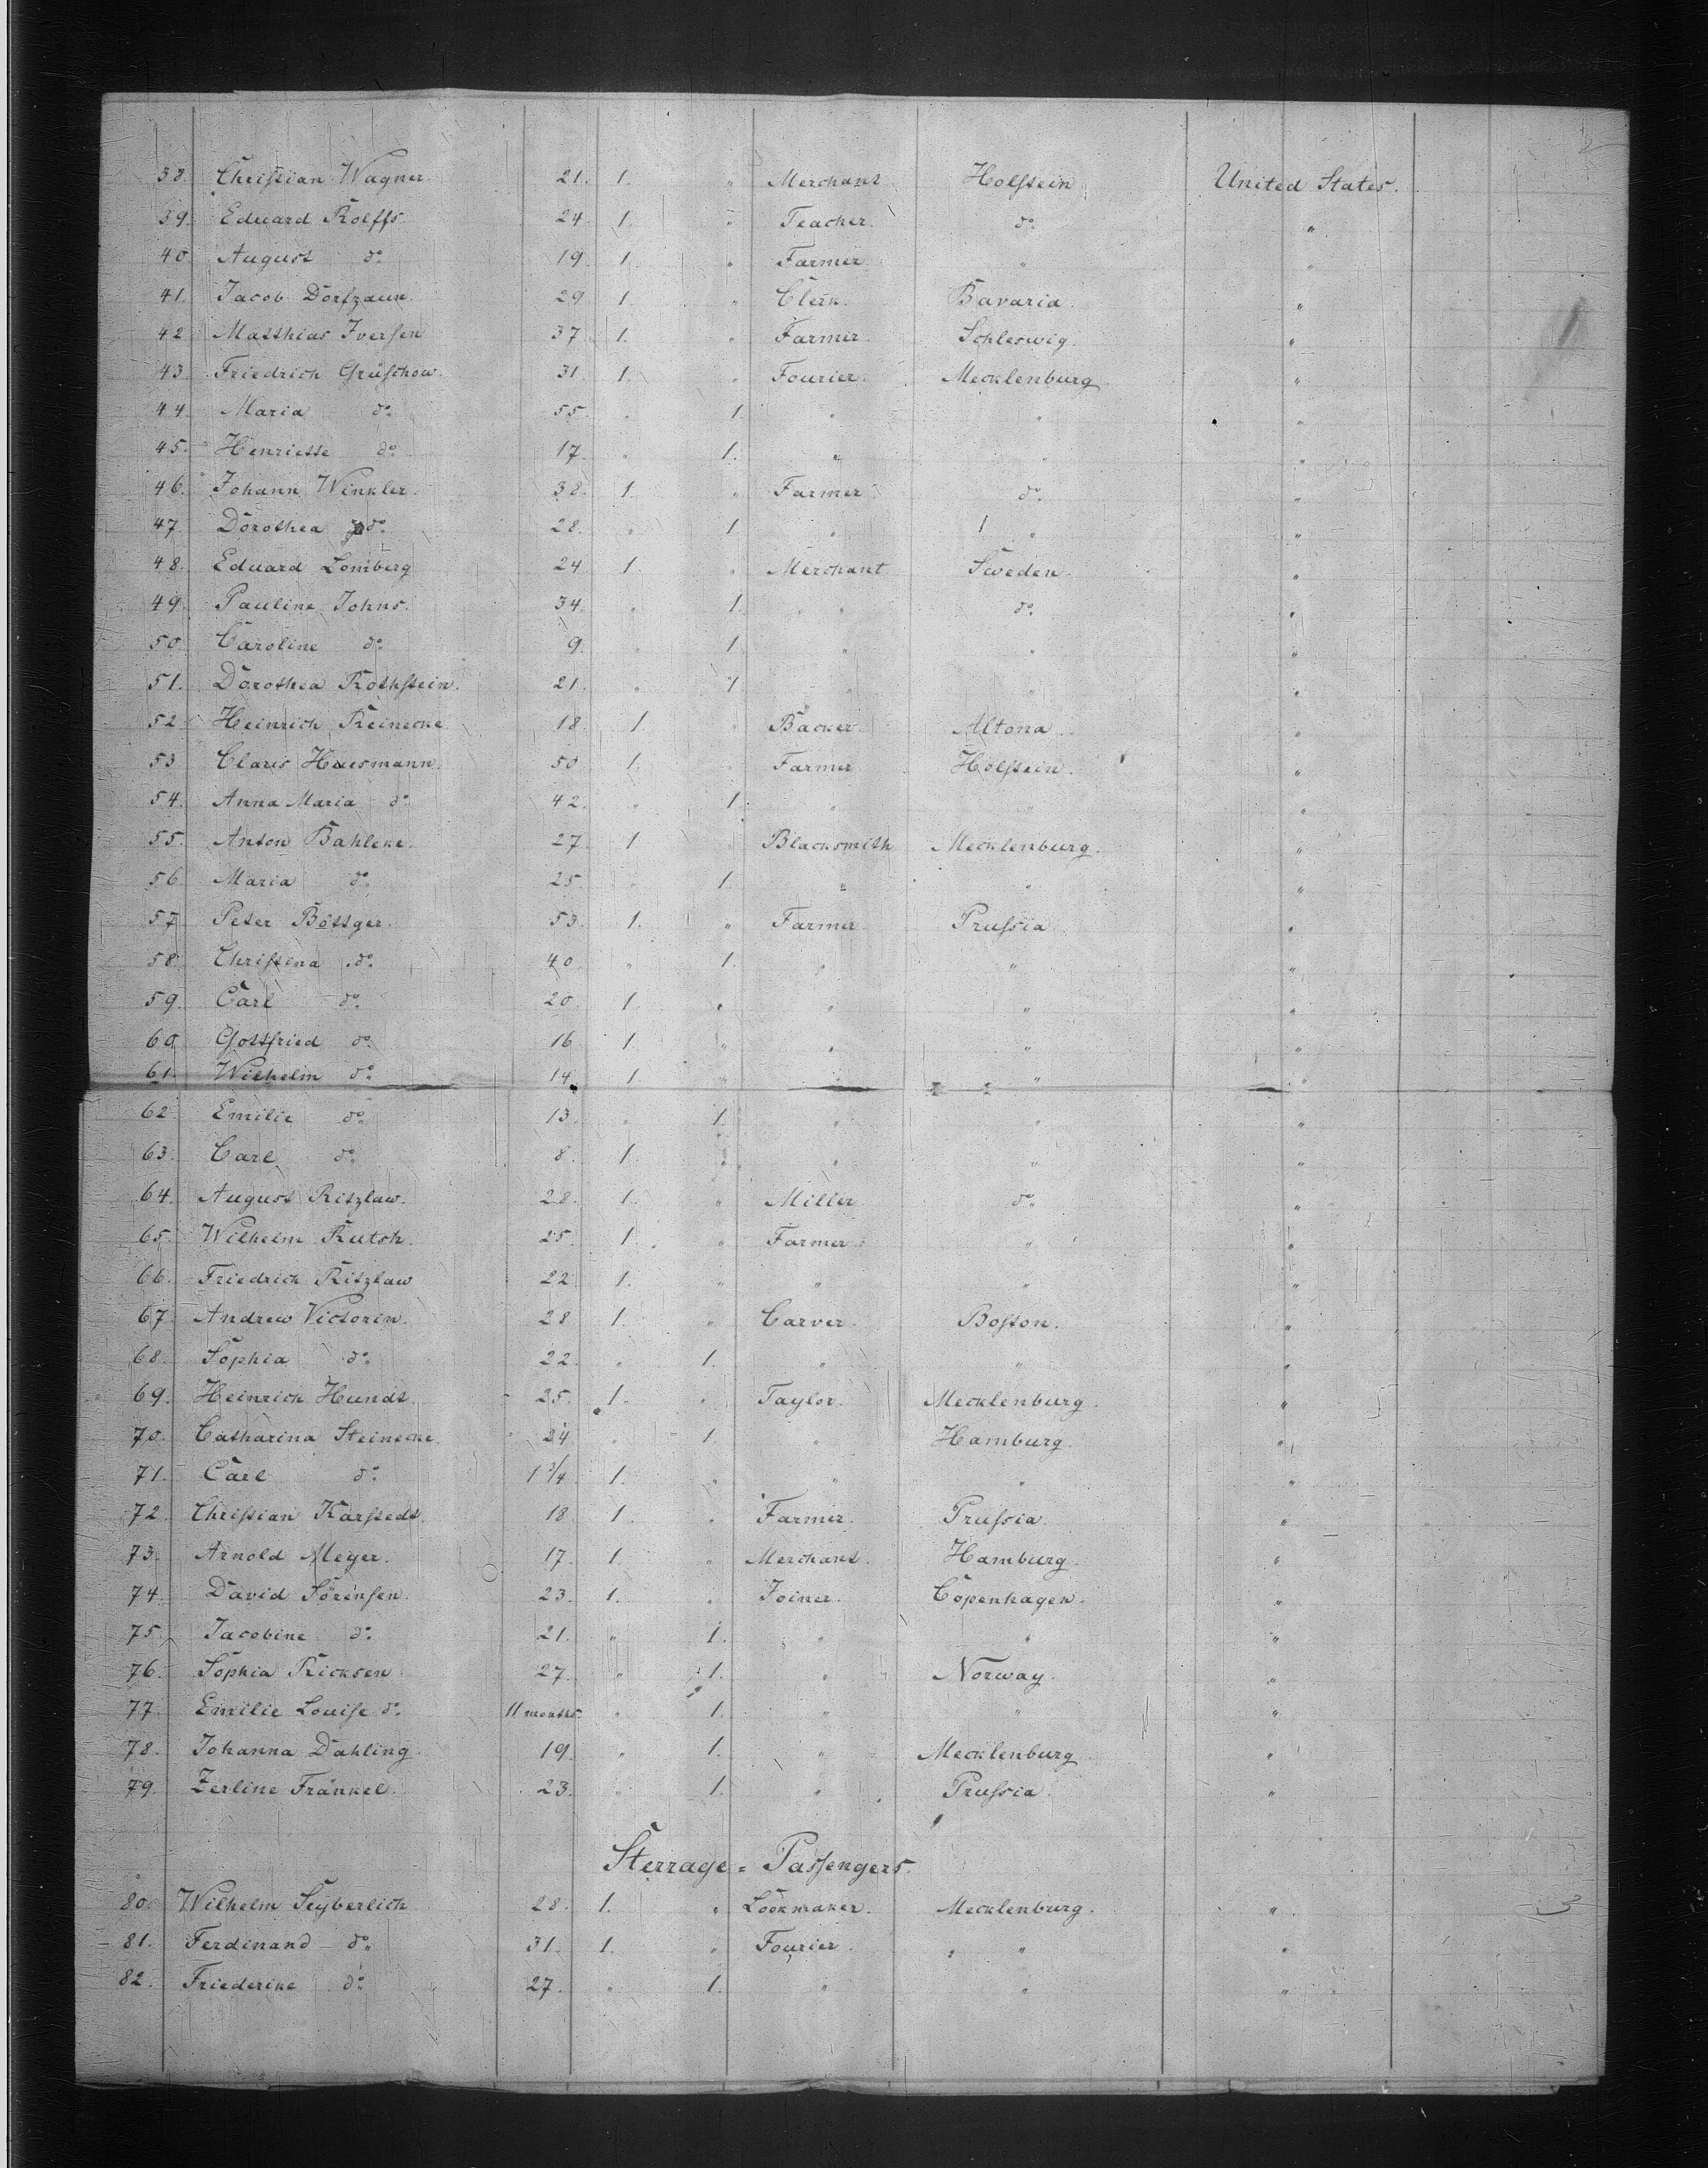 38. Christian Wagner. 21. 1. " Merchant Holstein United States.
39. Eduard Rolffs. 24. 1. " Teacher. do. "
40. August do. 19. 1. " Farmer. " "
41. Jacob Dorfzaun. 29. 1. " Clerk. Bavaria. "
42. Matthias Iversen 37. 1. " Farmer. Schleswig. "
43. Friedrich Grüschow. 31. 1. " Fourier. Mecklenburg. "
44. Maria do. 55. " 1. " " "
45. Henriette do. 17. " 1. " " "
46. Johann Winkler. 38. 1. " Farmer do. "
47. Dorothea do. 28. " 1. " " "
48. Eduard Lomberg 24. 1. " Merchant Sweden. "
49. Pauline Johns. 34. " 1. " do. "
50. Caroline do. 9. " 1. " " "
51. Dorothea Rothstein. 21. " 1. " " "
52. Heinrich Reinecke 18. 1. " Backer. Altona. "
53. Claus Huesmann. 50. 1. " Farmer Holstein. "
54. Anna Maria do. 42. " 1. " " "
55. Anton Bahleke. 27. 1. " Blacksmith Mecklenburg. "
56. Maria do. 25. " 1. " " "
57. Peter Böttger. 53. 1. " Farmer Prussia. "
58. Christina do. 40. " 1. " " "
59. Carl do. 20. 1. " " " "
60. Gottfried do. 16. 1. " " " "
61. Wilhelm do. 14. 1. " " " "
62. Emilie do. 13. " 1. " " "
63. Carl do. 8. 1. " " " "
64. August Ritzlaw. 28. 1. " Miller do. "
65. Wilhelm Rutsh. 25. 1. " Farmer. " "
66. Friedrich Ritzlaw 22. 1. " " " "
67. Andrew Victorin. 28. 1. " Carver. Boston. "
68. Sophia do. 22. " 1. " " "
69. Heinrich Hundt. 25. 1. " Taylor. Mecklenburg. "
70. Catharina Steinecke. 24. " 1. " Hamburg. "
71. Carl do. 1 3/4. 1. " " " "
72. Christian Karstedt. 18. 1. " Farmer. Prussia. "
73. Arnold Meyer. 17. 1. " Merchant. Hamburg. "
74. David Sörensen. 23. 1. " Joiner. Copenhagen. "
75. Jacobine do. 21. " 1. " " "
76. Sophia Ricksen 27. " 1. " Norway. "
77. Emilie Louise do. 11 months. " 1. " " "
78. Johanna Dahling. 19. " 1. " Mecklenburg "
79. Zerline Fränkel. 23. " 1. " Prussia. "
Sterrage = Passengers.
80. Wilhelm Seyberlich 28. 1. " Lockmaker. Mecklenburg. "
81. Ferdinand do. 31. 1. " Fourier. " "
82. Friederike do. 27. " 1. " " "